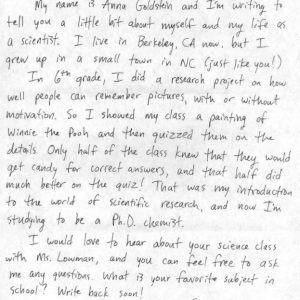 My name is Anna Goldstein and I'm writing to
tell you a little bit about myself and my life as
a scientist. I live in Berkeley, CA now, but I
grew up in a small town in NC (just like you!)
In 6th grade, I did a research project on how
well people can remember pictures, with or without
motivation. So I showed my class a painting of
Winnie the Pooh and then quizzed them on the
details. Only half of the class knew that they would
get candy for correct answers, and that half did
much better on the quiz! That was my introduction
to the world of scientific research, and now I'm
studying to be a Ph.D. chemist.
I would love to hear about your science class
with Ms. Lowman, and you can feel free to ask
me any questions. What is your favorite subject in
school? Write back soon!